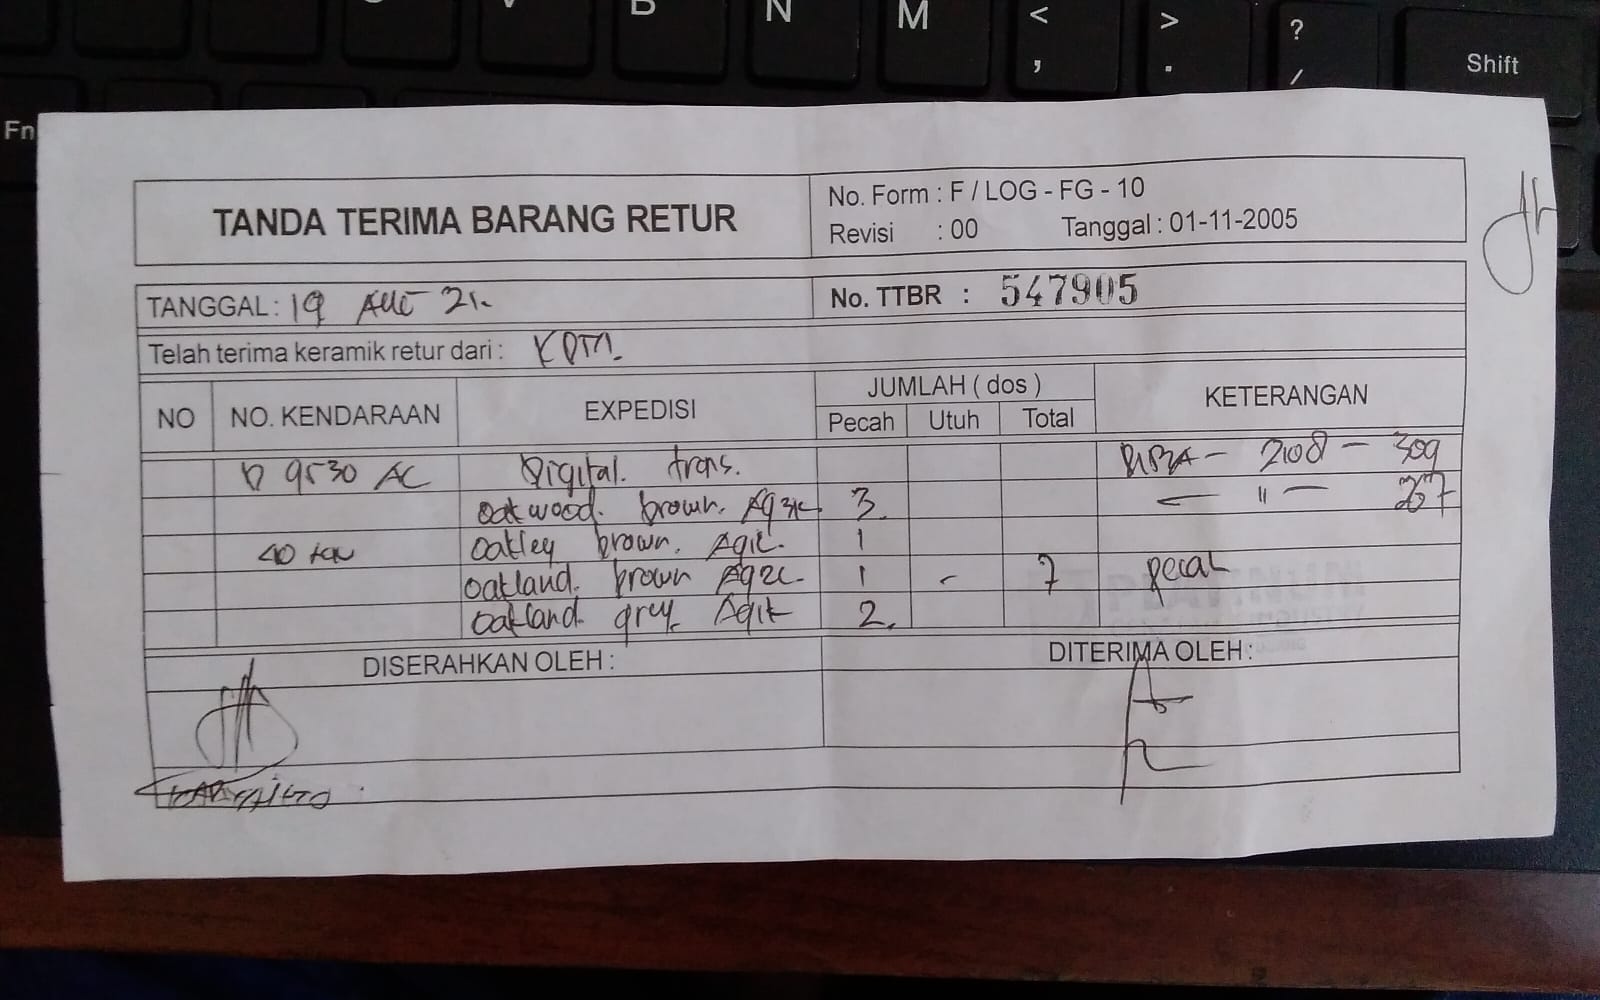 B
N
M
<
,
>
.
?
/
Shift
Fn
TANDA TERIMA BARANG RETUR
No. Form : F / LOG - FG - 10
Revisi : 00 Tanggal : 01-11-2005
TANGGAL : 19 21.
No. TTBR : 547905
Telah terima keramik retur dari :
NO NO. KENDARAAN EXPEDISI JUMLAH ( dos ) KETERANGAN
Pecah Utuh Total
9530 AC Digital. trans. 2108 - 309
oakwood. brown. 3. — " — 267
oakley brown. 1
oakland. brown 1 - 7 pecah
oakland grey. 2.
DISERAHKAN OLEH :
DITERIMA OLEH :